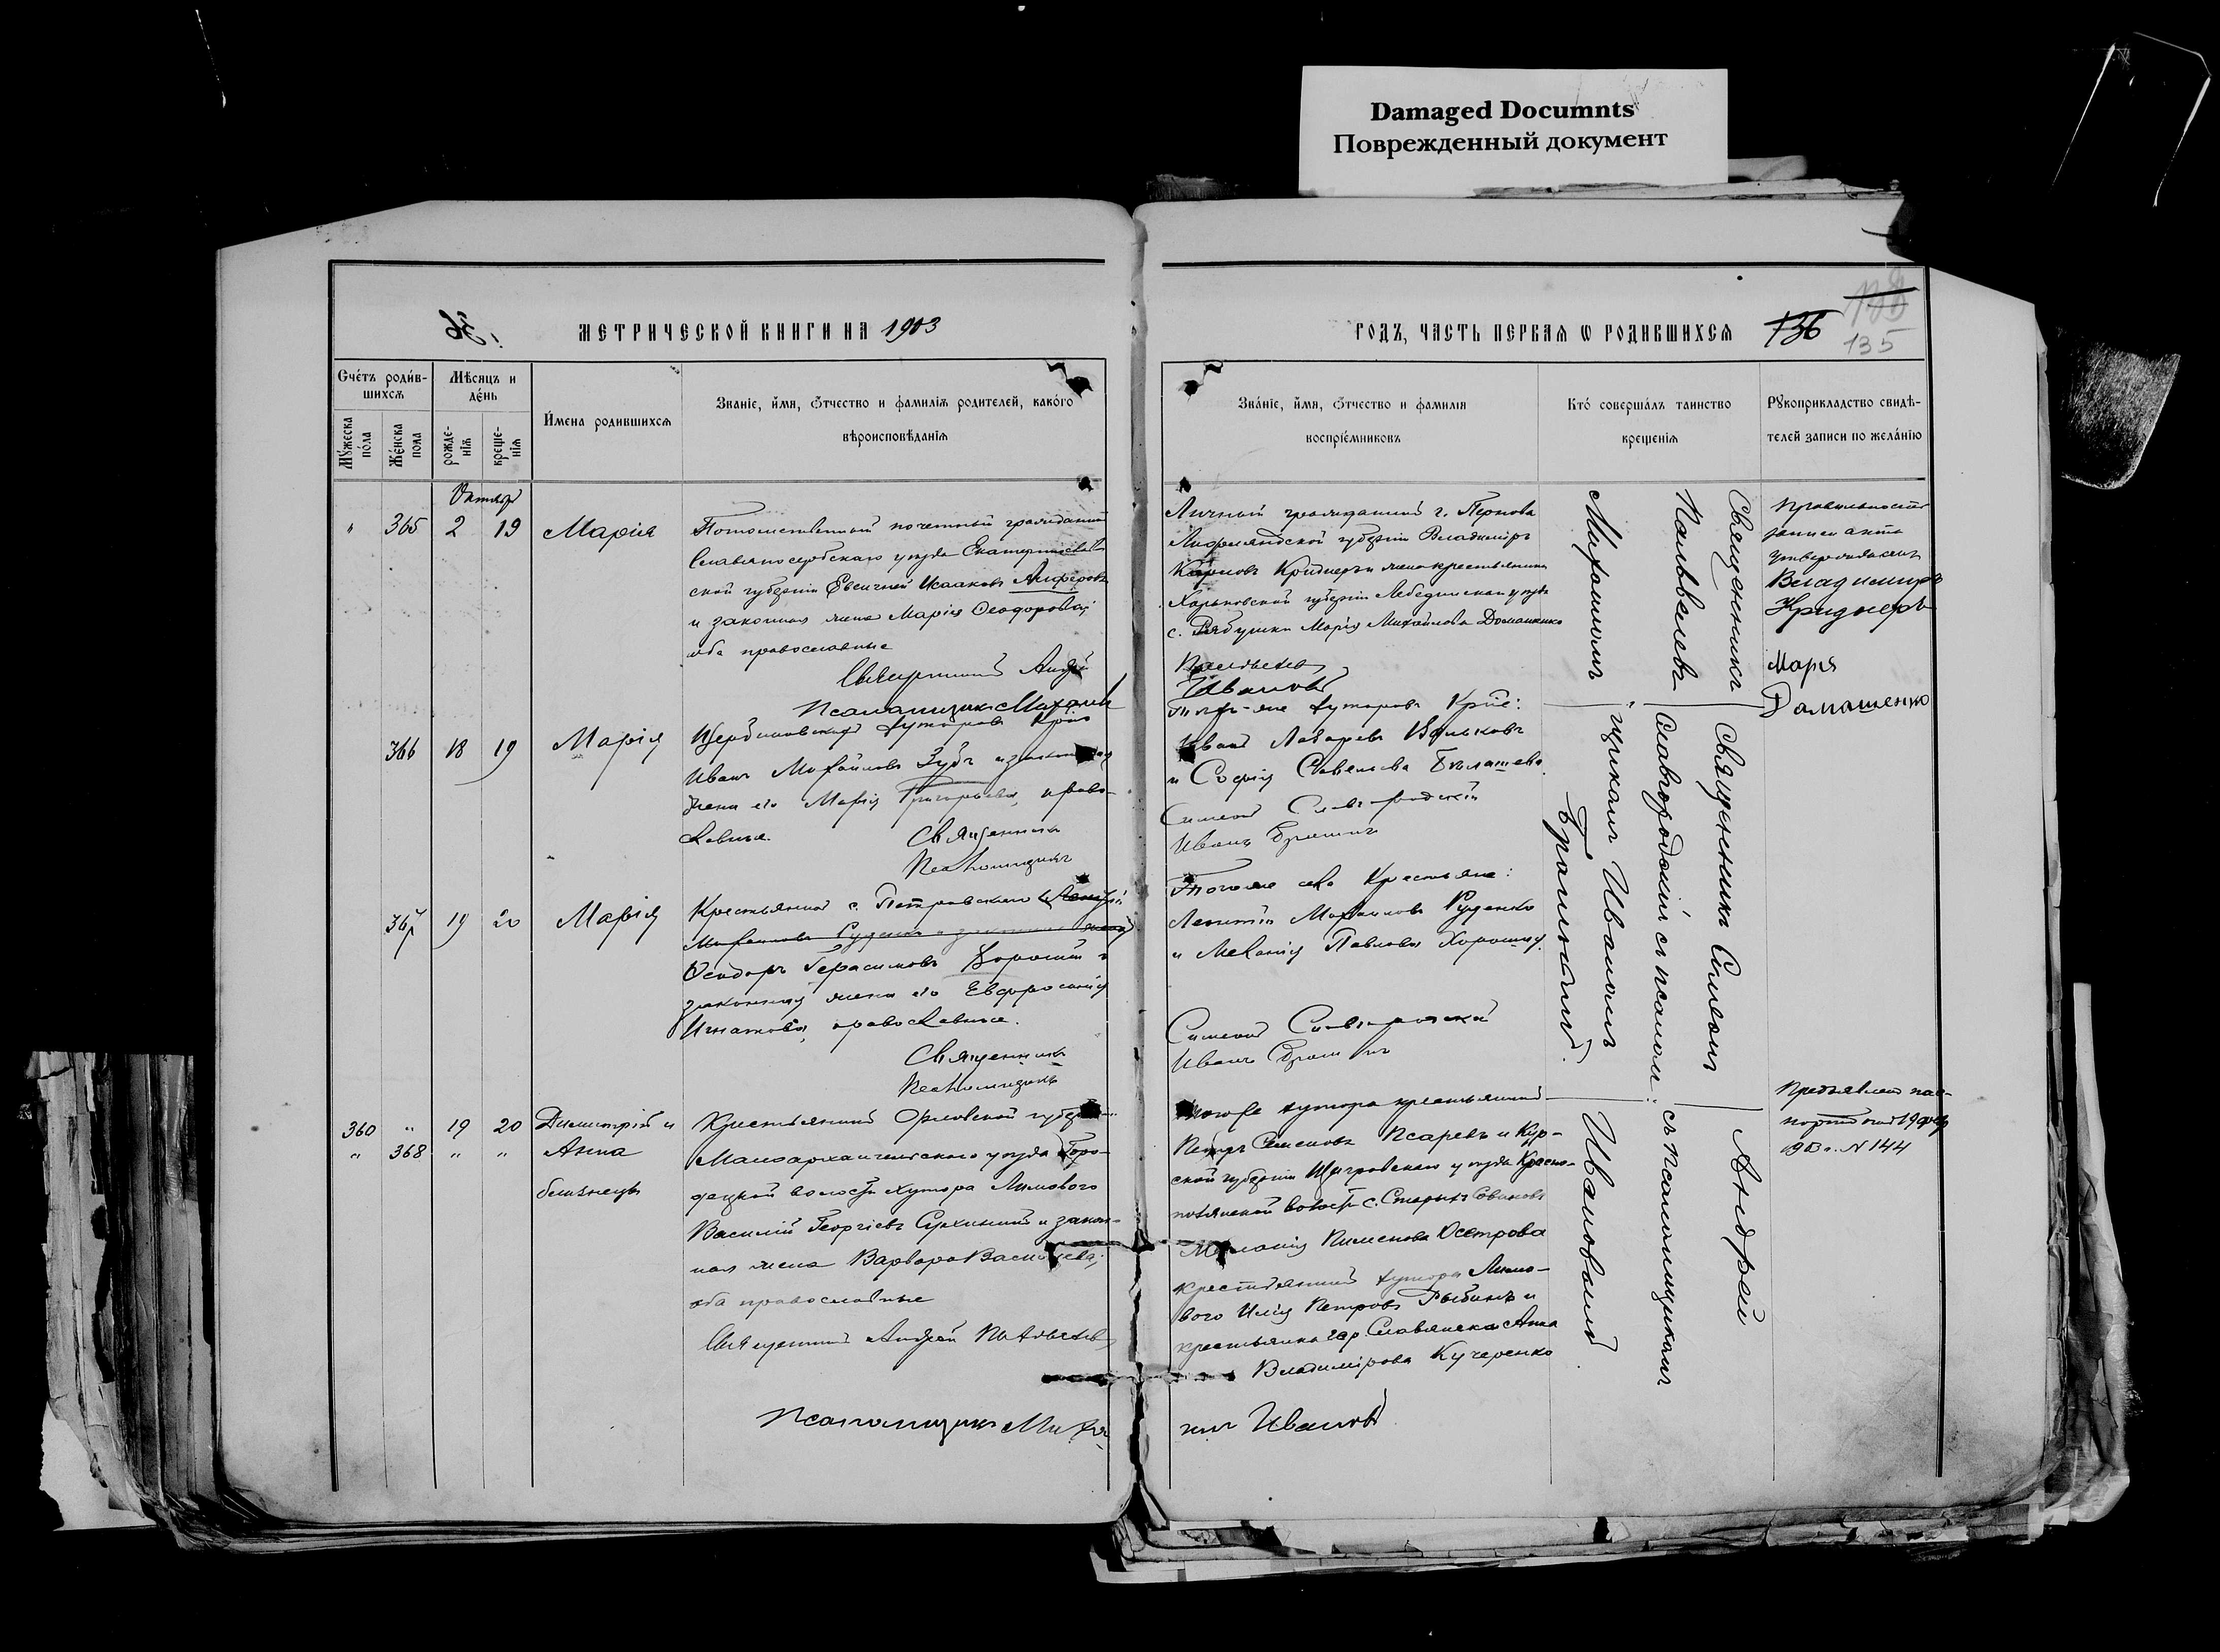 Damaged Documnts
Поврежденный документ
МЕТРИЧЕСКОЙ КНИГИ НА 1903
ГОДЪ, ЧАСТЬ ПЕРВАЯ Ѡ РОДИВШИХСЯ
136
135
Счетъ родив-
шихся
Мѣсяцъ и
день
Имена родившихся
Званіе, имя, отчество и фамилія родителей, какого
вѣроисповѣданія
Мужеска
пола
Женска
пола
рожде-
нія
креще-
нія
Званіе, имя, отчество и фамилія
воспріемниковъ
Кто совершалъ таинство
крещенія
Рукоприкладство свидѣ-
телей записи по желанію
Октябрь
" 365 2 19 Марія
Потомственный почетный гражданинъ
Славяносербскаго уѣзда Екатеринослав
ской губерніи Евсигней Исааковъ Алферовъ
и законная жена Марія Ѳеодорова,
оба православные
Священникъ Андрей
Псаломщикъ Михаилъ
Личный гражданинъ г. Пернова
Лифляндской губерніи Владиміръ
Карловъ Криднеръ и жена крестьянина
Харьковской губерніи Лебединскаго уѣзда
с. Рябушки Марія Михайлова Домашенко
Пальвелевъ
Ивановъ
Священникъ
Пальвелевъ
Михаиломъ
Правильность
записи акта
утверждаемъ
Владимиръ
Криднеръ
Марія
Дамашенко
366 18 19 Марія
Щербиновскихъ хуторовъ Крест
Иванъ Михайловъ Зубъ и законная
жена его Марія Григорьева, право-
славные.
Священникъ
Псаломщикъ
Тѣхъ-же хуторовъ Крест:
Иванъ Лазаревъ Волыковъ
и Софія Савельева Бѣлашева.
Симеонъ Славгородскій
Иванъ
Священникъ Симеонъ
Славгородскій съ псалом:
щикомъ Иваномъ
367 19 20 Марія
Крестьянинъ с. Петровскаго Леонтій
Михайловъ Руденко и законная жена
Ѳеодоръ Герасимовъ Хорошій и
законная жена его Евфросинія
Игнатова, православные.
Священникъ
Псаломщикъ
Того-же села Крестьяне:
Леонтій Михайловъ Руденко
и Меланія Павлова Хорошая.
Симеонъ Славгородскій
Иванъ
360 " 19 20 Димитрій и
" 368 " " Анна
близнецы
Крестьянинъ Орловской губерніи
Малоархангельскаго уѣзда Горо-
децкой волости хутора Лимового
Василій Георгіевъ Сухининъ и закон-
ная жена Варвара Васильева;
оба православные
Священникъ Андрей Пальвелевъ
Псаломщикъ Миха
того же хутора крестьянинъ
Петръ Семеновъ Псаревъ и Кур-
ской губерніи Щигровскаго уѣзда Красно-
полянской волости с. Старыхъ Савиновъ
Меланія Пименова Осетрова
крестьянинъ хутора Лимо-
вого Илія Петровъ Рыбинъ и
крестьянка гор. Славянска Анна
Владимірова Кучеренко
илъ Ивановъ
Андрей
съ псаломщикомъ
Ивановымъ
Предъявленъ пас-
портъ
1903 г. N 144